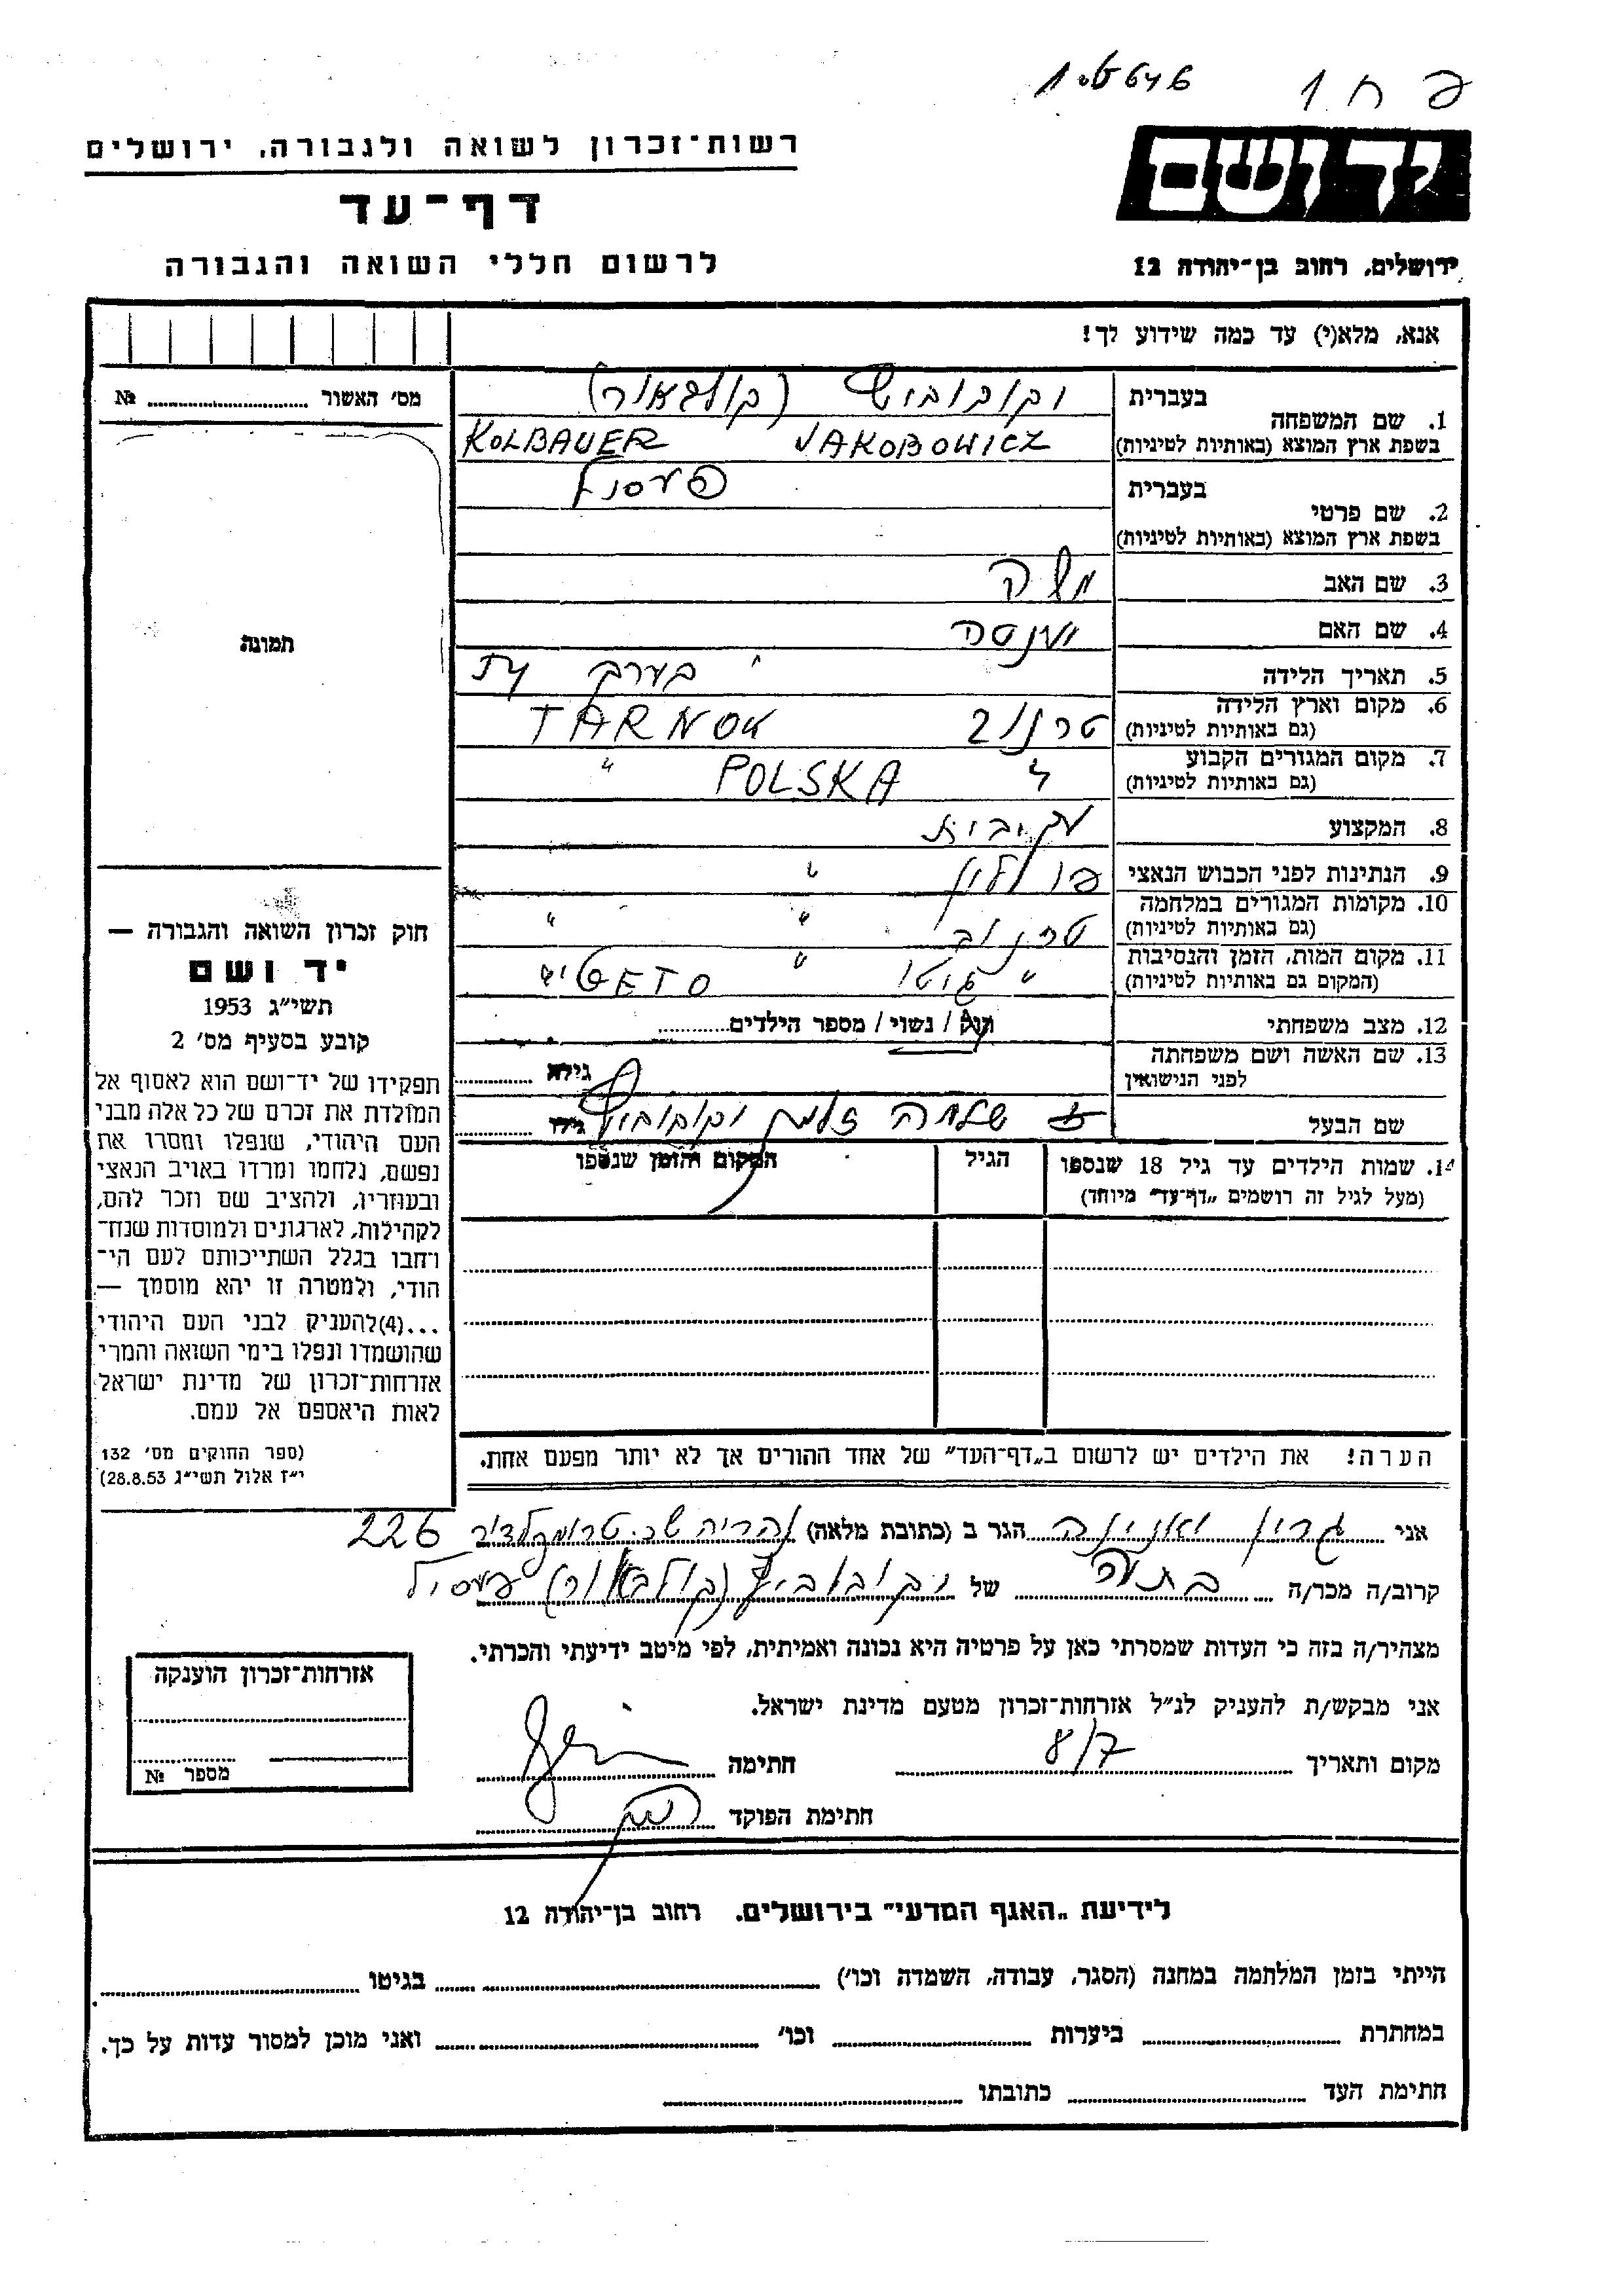 פ ח 1
ידושם
ירושלים, רחוב בן־יהודה 12
רשות־זכרון לשואה ולגבורה, ירושלים
דף־עד
לרשום חללי השואה והגבורה
אנא, מלא(י) עד כמה שידוע לך!
מס׳ האשור № ........
תמונה
1. שם המשפחה
בעברית
יקובוביץ (קולבאור)
בשפת ארץ המוצא (באותיות לטיניות)
JAKOBOWICZ KOLBAUER
2. שם פרטי
בעברית
בשפת ארץ המוצא (באותיות לטיניות)
3. שם האב משה
4. שם האם
5. תאריך הלידה בערך
6. מקום וארץ הלידה
(גם באותיות לטיניות)
טרנוב TARNOW
7. מקום המגורים הקבוע
(גם באותיות לטיניות)
" POLSKA "
8. המקצוע
9. הנתינות לפני הכבוש הנאצי פולין "
10. מקומות המגורים במלחמה
(גם באותיות לטיניות)
טרנוב " "
11. מקום המות, הזמן והנסיבות
(המקום גם באותיות לטיניות)
" גיטו " GETO
12. מצב משפחתי רווק / נשוי / מספר הילדים ........
13. שם האשה ושם משפחתה
לפני הנישואין
גילה ........
שם הבעל שלמה זלמן יקובוביץ גילו ........
14. שמות הילדים עד גיל 18 שנספו
(מעל לגיל זה רושמים „דף־עד״ מיוחד)
הגיל
המקום והזמן שנספו
הערה! את הילדים יש לרשום ב„דף־העד״ של אחד ההורים אך לא יותר מפעם אחת.
חוק זכרון השואה והגבורה —
יד ושם
תשי״ג 1953
קובע בסעיף מס׳ 2
תפקידו של יד־ושם הוא לאסוף אל
המולדת את זכרם של כל אלה מבני
העם היהודי, שנפלו ומסרו את
נפשם, נלחמו ומרדו באויב הנאצי
ובעוזריו, ולהציב שם וזכר להם,
לקהילות, לארגונים ולמוסדות שנח־
רחבו בגלל השתייכותם לעם הי־
הודי, ולמטרה זו יהא מוסמך —
...(4) להעניק לבני העם היהודי
שהושמדו ונפלו בימי השואה והמרי
אזרחות־זכרון של מדינת ישראל
לאות היאספם אל עמם.
(ספר החוקים מס׳ 132
י״ז אלול תשי״ג 28.8.53)
אני גרין יאנינה הגר ב (כתובת מלאה) נהריה שכ. טרומפלדור 226
קרוב/ה מכר/ה בתה של יקובוביץ (קולבאור)
מצהיר/ה בזה כי העדות שמסרתי כאן על פרטיה היא נכונה ואמיתית, לפי מיטב ידיעתי והכרתי.
אני מבקש/ת להעניק לנ״ל אזרחות־זכרון מטעם מדינת ישראל.
מקום ותאריך 8/7 חתימה
חתימת הפוקד
אזרחות־זכרון הוענקה
מספר №
לידיעת „האגף המדעי״ בירושלים, רחוב בן־יהודה 12
הייתי בזמן המלחמה במחנה (הסגר, עבודה, השמדה וכו׳) ........ בגיטו ........
במחתרת ........ ביערות ........ וכו׳ ........ ואני מוכן למסור עדות על כך.
חתימת העד ........ כתובתו ........